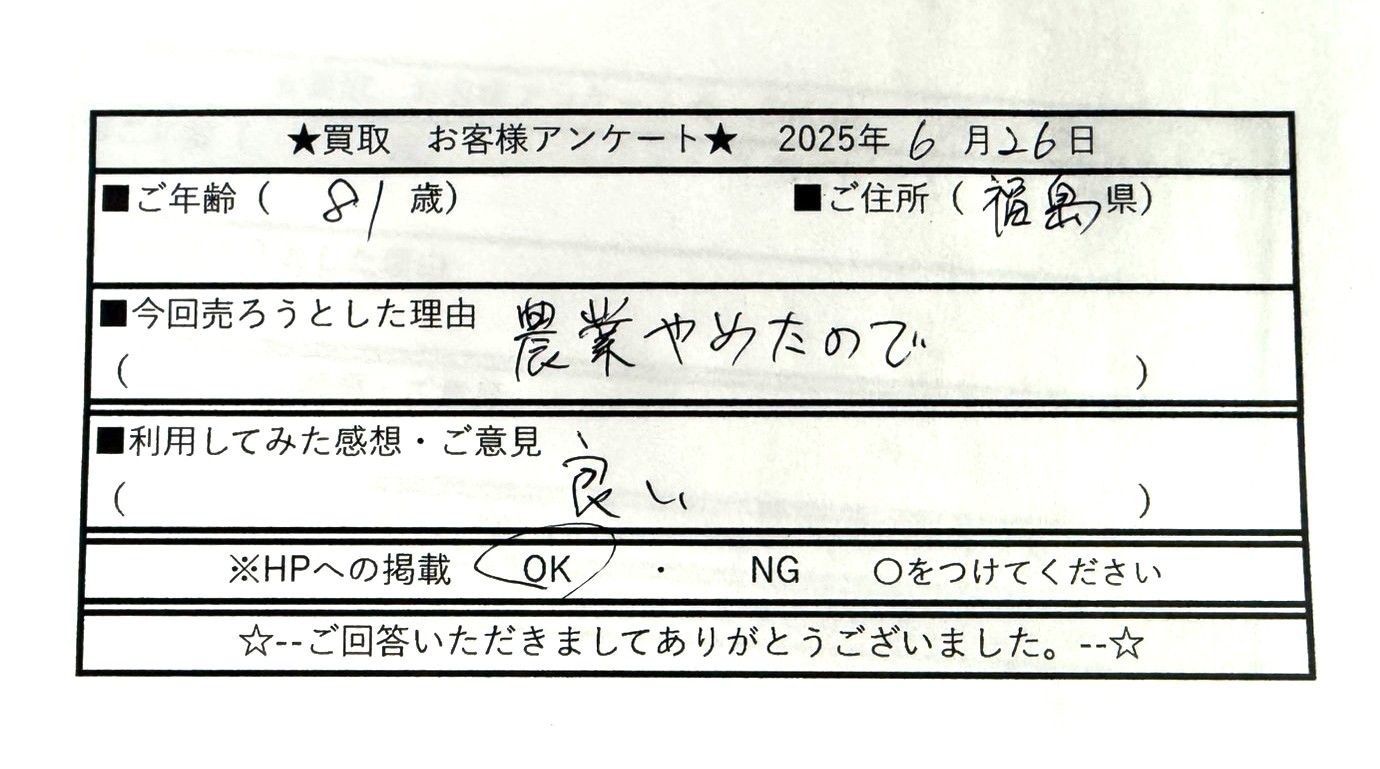 ★買取　お客様アンケート★　2025年 6 月26日
■ご年齢（ 81 歳）　■ご住所（ 福島県）
■今回売ろうとした理由　農業やめたので
（　）
■利用してみた感想・ご意見
（　良い　）
※HPへの掲載　OK　・　NG　〇をつけてください
☆--ご回答いただきましてありがとうございました。--☆